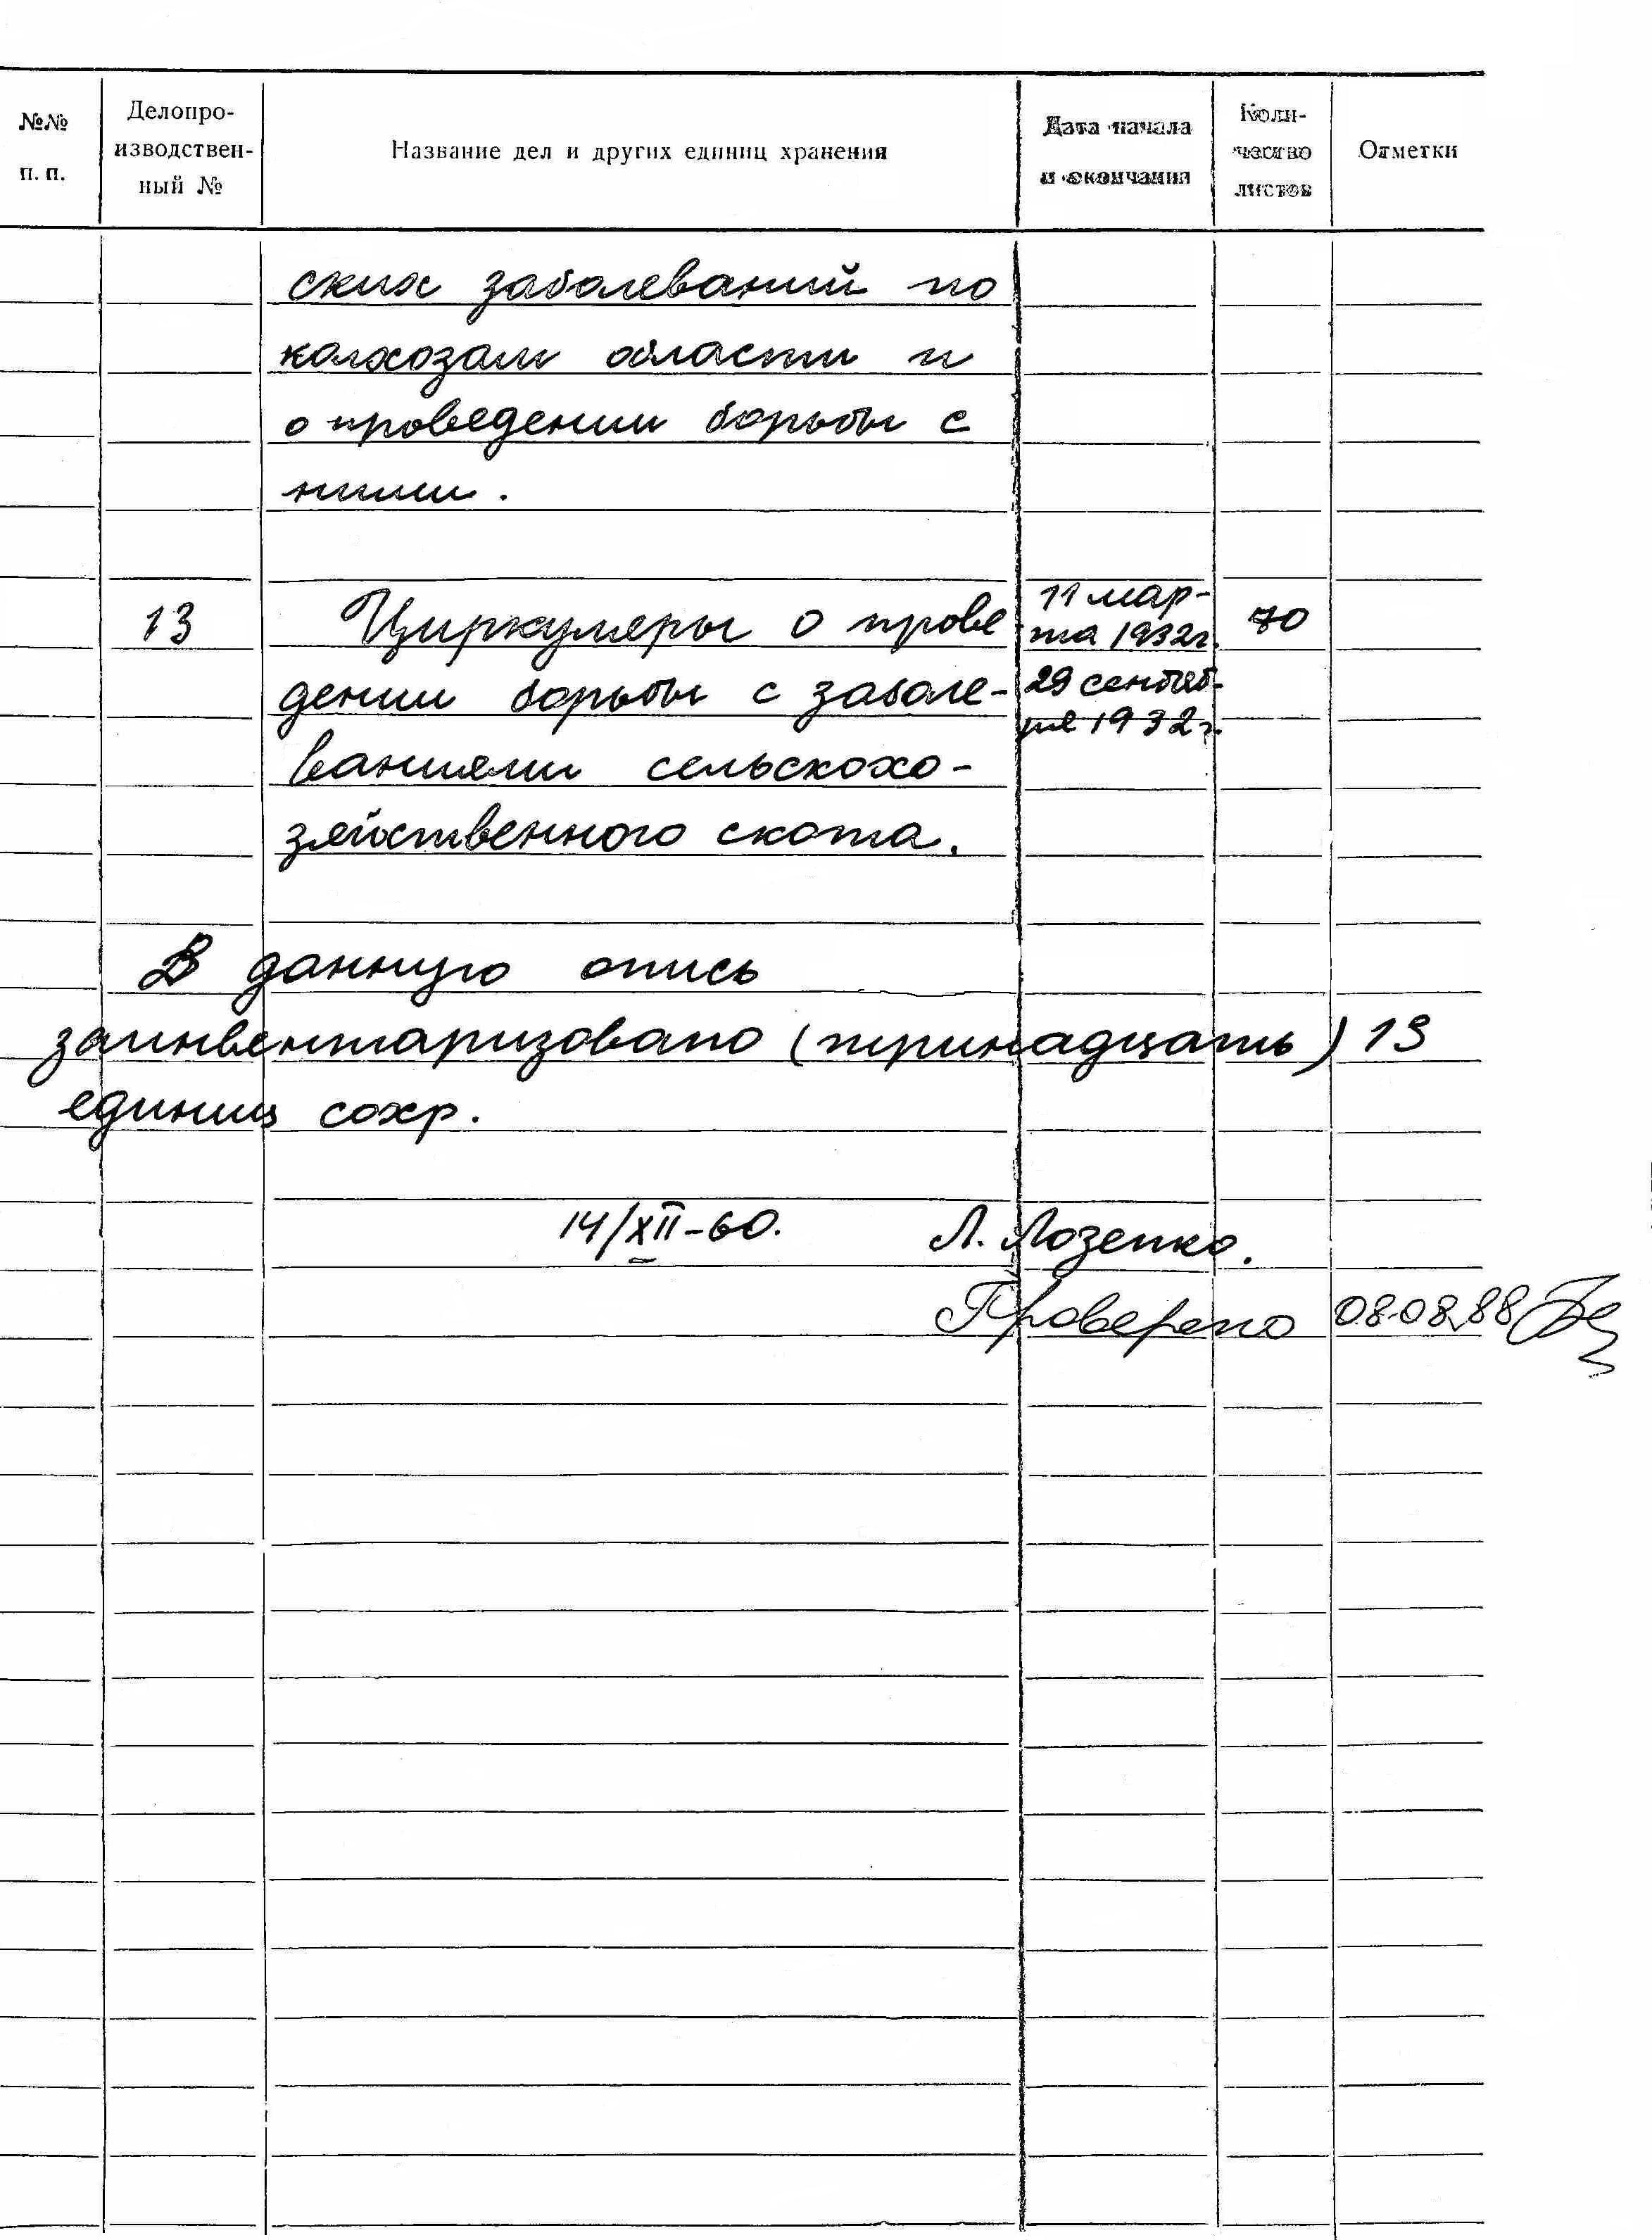 №№ п. п.
Делопро-
изводствен-
ный №
Название дел и других единиц хранения
Дата начала
и окончания
Коли-
чество
листов
Отметки
ских заболеваний по
колхозам области и
о проведении борьбы с
ними.
13 Циркуляры о прове 11 мар- 70
та 1932г.
дении борьбы с заболе- 29 сентяб-
ря 1932г.
ваниями сельскохо-
зяйственного скота.
В данную опись
заинвентаризовано (тринадцать) 13
единиц сохр.
14/XII-60. Л. Лозенко.
Проверено 08.08.88